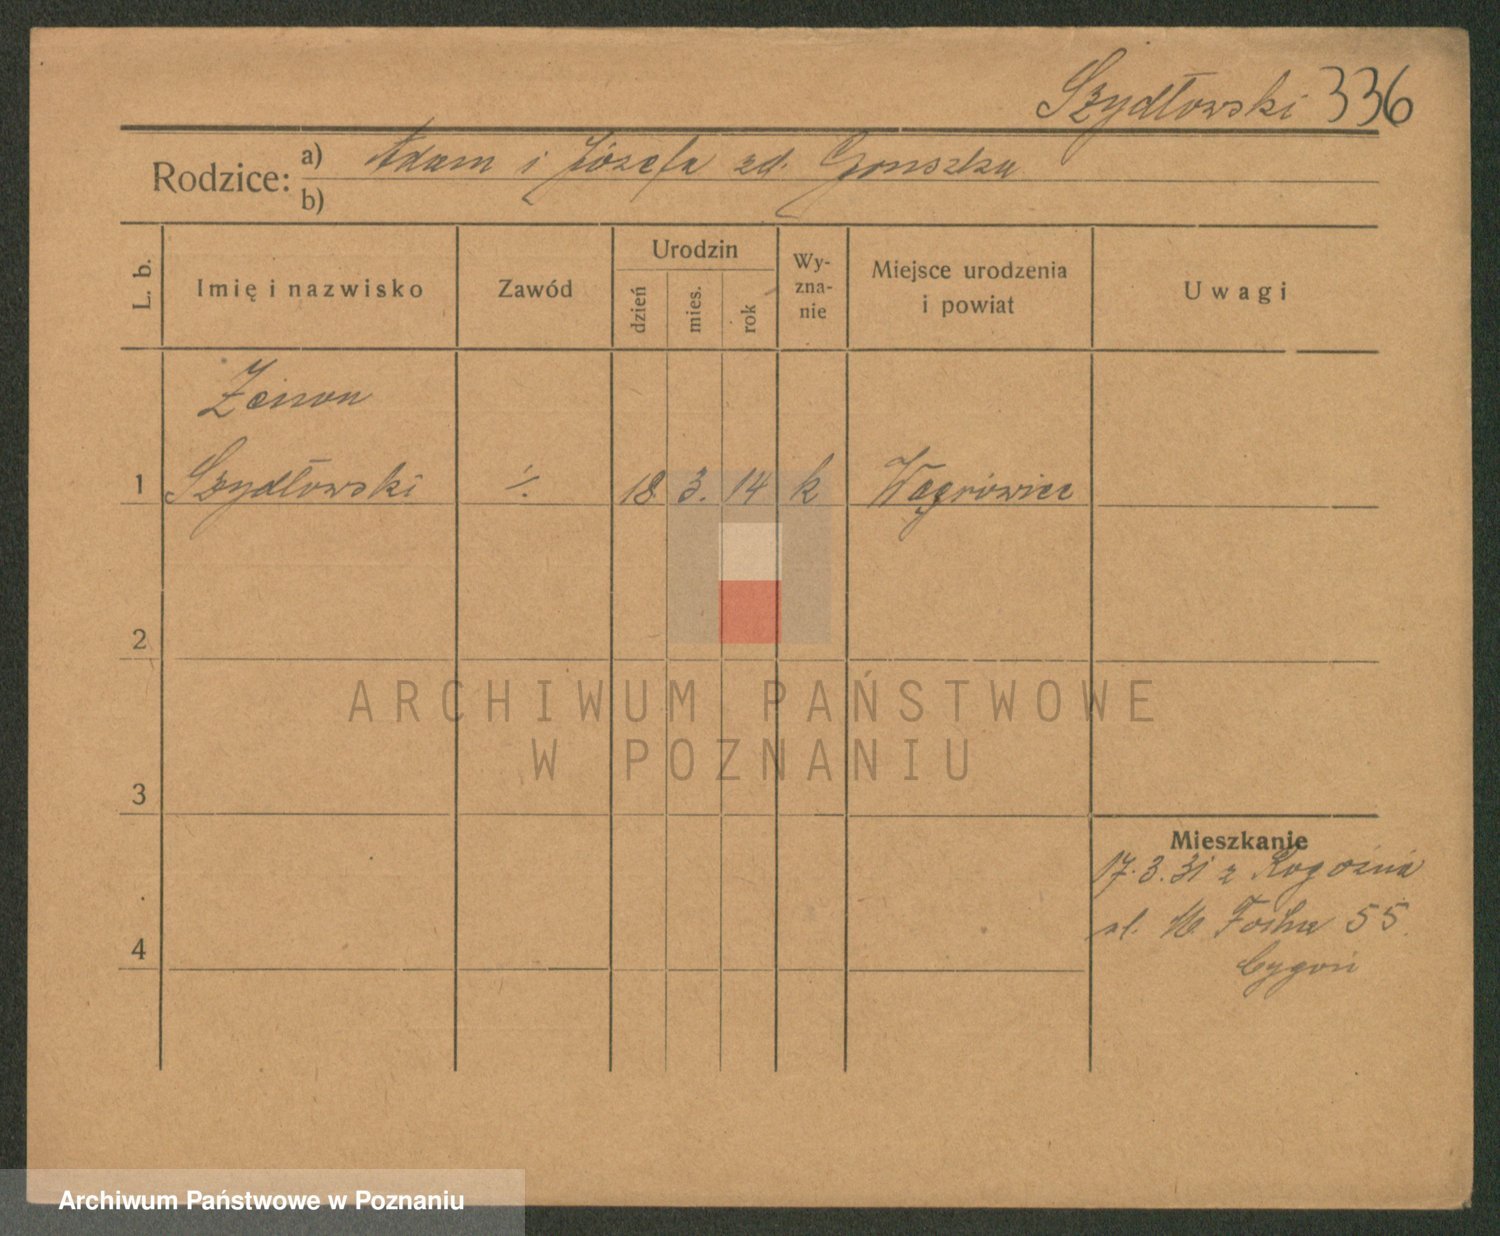 Szydłowski 336
Rodzice: a) Adam i Józefa zd.
b)
L. b.
Imię i nazwisko
Zawód
Urodzin
dzień
mies.
rok
Wy-
zna-
nie
Miejsce urodzenia
i powiat
Uwagi
Zenon
1 Szydłowski ·/. 18 3. 14 k Wągrówiec
2
ARCHIWUM PAŃSTWOWE
W POZNANIU
3
Mieszkanie
17.3.31 z Rogoźna
ul. M Focha 55.
4
Cygoń
Archiwum Państwowe w Poznaniu